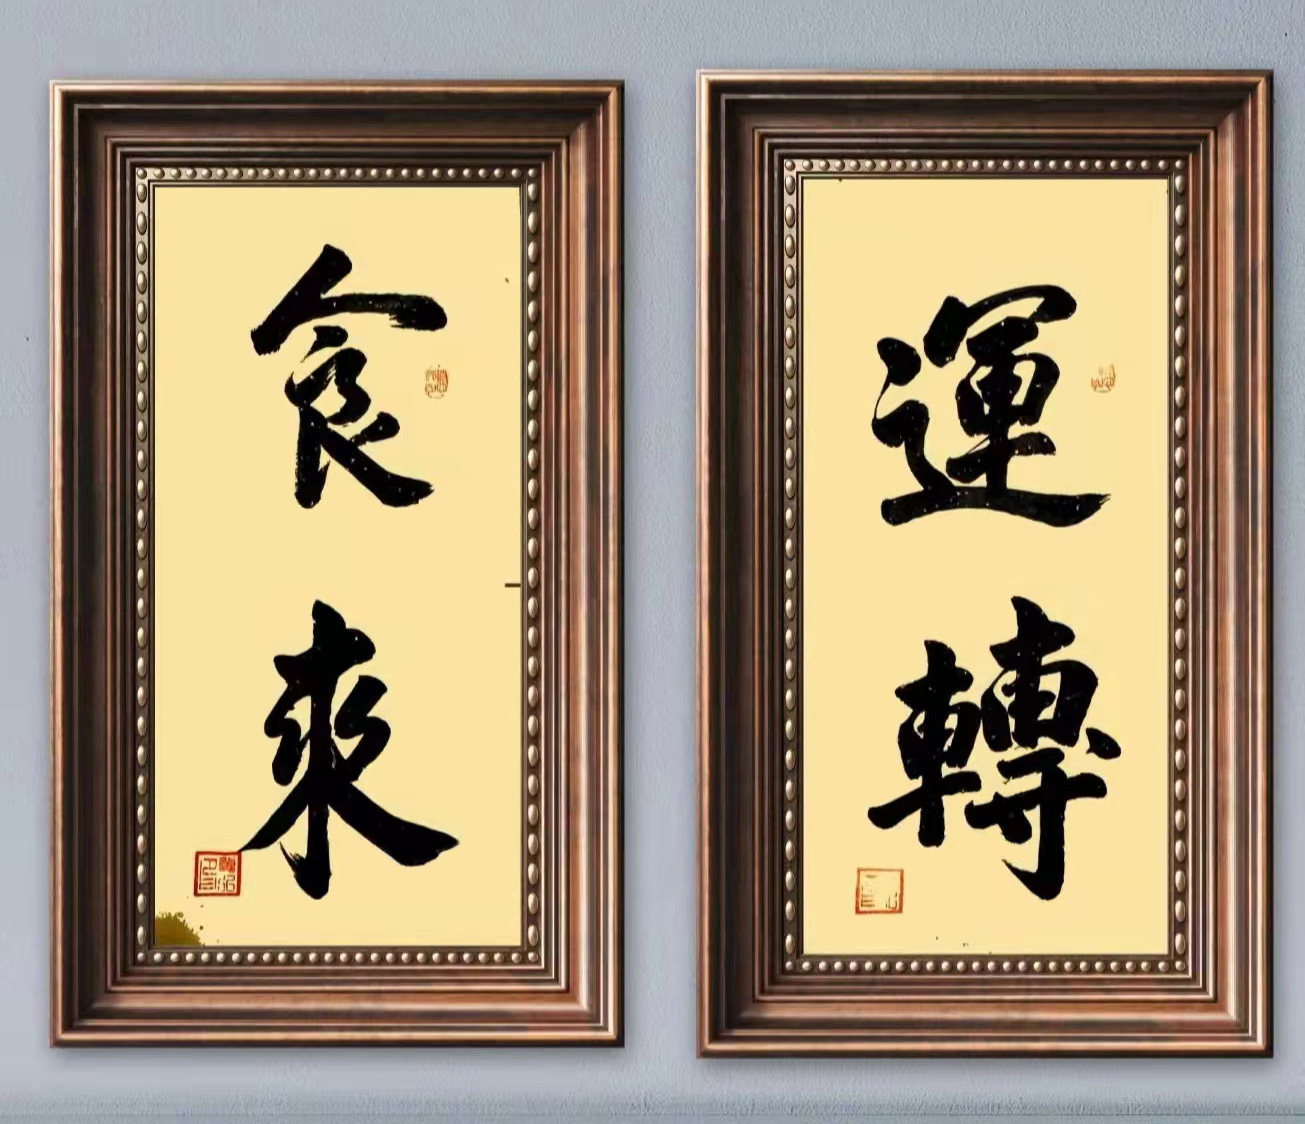 食來
運轉